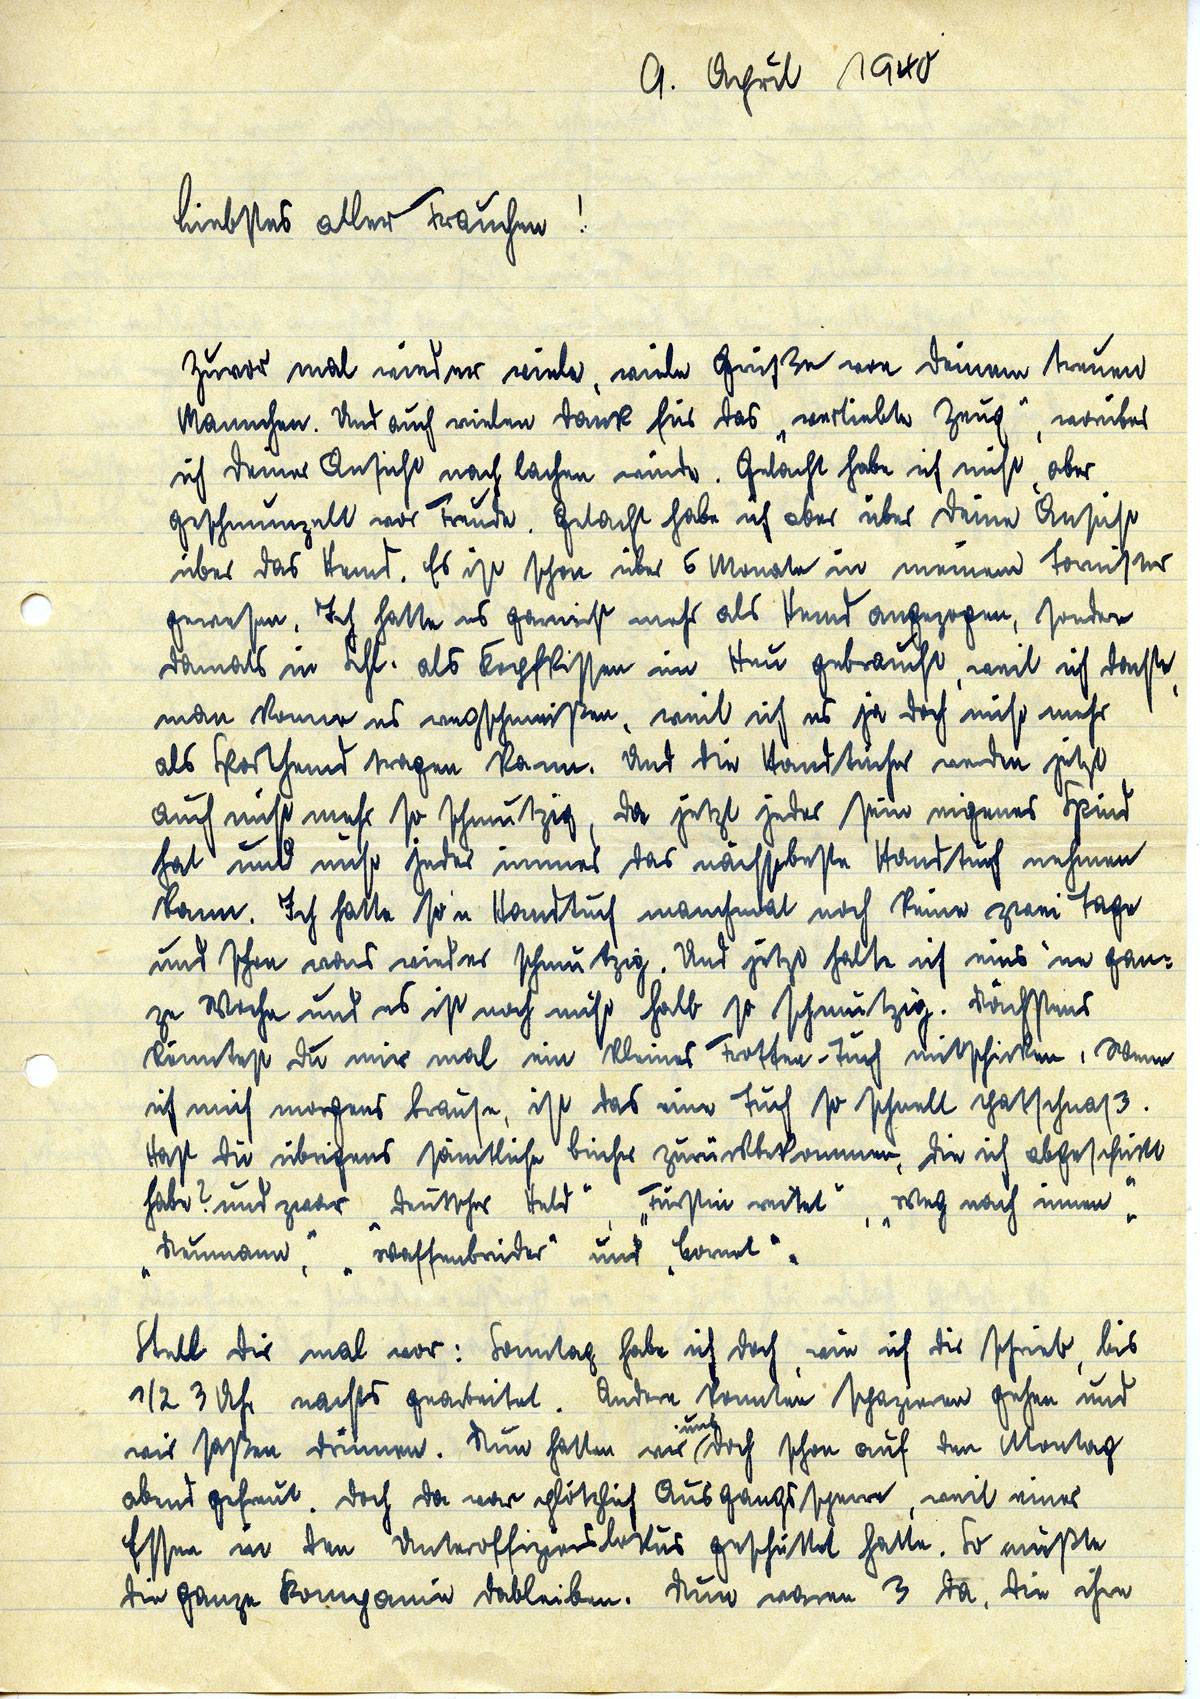 9. April 1940
Liebstes aller Frauchen!
Zuvor mal wieder viele, viele Grüße von Deinem treuen
Mannchen. Und auch vielen Dank für das „verliebte Zeug“, worüber
ich Deiner Ansicht nach lachen würde. Gelacht habe ich nicht, aber
geschmunzelt vor Freude. Gelacht habe ich aber über Deine Ansicht
über das Hemd. Es ist schon über 6 Monate in meinem Tornister
gewesen. Ich hatte es garnicht mehr als Hemd angezogen, sondern
damals in Schl. als Kopfkissen im Heu gebraucht, weil ich dachte,
man könne es wegschmeißen, weil ich es ja doch nicht mehr
als Sporthemd tragen kann. Und die Handtücher werden jetzt
auch nicht mehr so schmutzig, da jetzt jeder sein eigenes Spind
hat und nicht jeder immer das nächstbeste Handtuch nehmen
kann. Ich hatte so'n Handtuch manchmal noch keine zwei Tage
und schon wars wieder schmutzig. Und jetzt hatte ich eins 'ne gan=
ze Woche und es ist noch nicht halb so schmutzig. Nächstens
könntest Du mir mal ein kleines Frottee-Tuch mitschicken. Wenn
ich mich morgens brause, ist das eine Tuch so schnell patschnaß.
Hast Du übrigens sämtliche Bücher zurückbekommen, die ich abgeschickt
habe? und zwar „Deutscher Held“, „Fürstin reitet“, „Weg nach innen“
„Neumann“, „Waffenbrüder“ und „Cornet“.
Stell Dir mal vor: Sonntag habe ich doch, wie ich dir schrieb, bis
1/2 3 Uhr nachts gearbeitet. Andere konnten spazieren gehen und
wir saßen drinnen. Nun hatten wir uns doch schon auf den Montag
abend gefreut. Doch da war plötzlich Ausgangssperre, weil einer
Essen in den Unteroffizierslokus geschüttet hatte. So mußte
die ganze Kompanie dableiben. Nun waren 3 da, die ihre